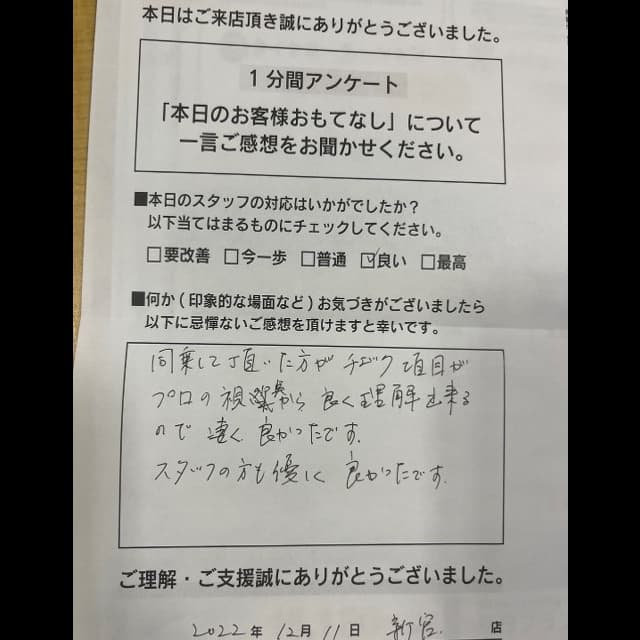 本日はご来店頂き誠にありがとうございました。
1分間アンケート
「本日のお客様おもてなし」について
一言ご感想をお聞かせください。
■本日のスタッフの対応はいかがでしたか？
以下当てはまるものにチェックしてください。
□要改善 □今一歩 □普通 ☑良い □最高
■何か(印象的な場面など)お気づきがございましたら
以下に忌憚ないご感想を頂けますと幸いです。
同乗して頂いた方がチェック項目が
プロの視点から良く理解出来る
ので 良かったです.
スタッフの方も優しく 良かったです.
ご理解・ご支援誠にありがとうございました。
2022年 12月 11日 新宿. 店